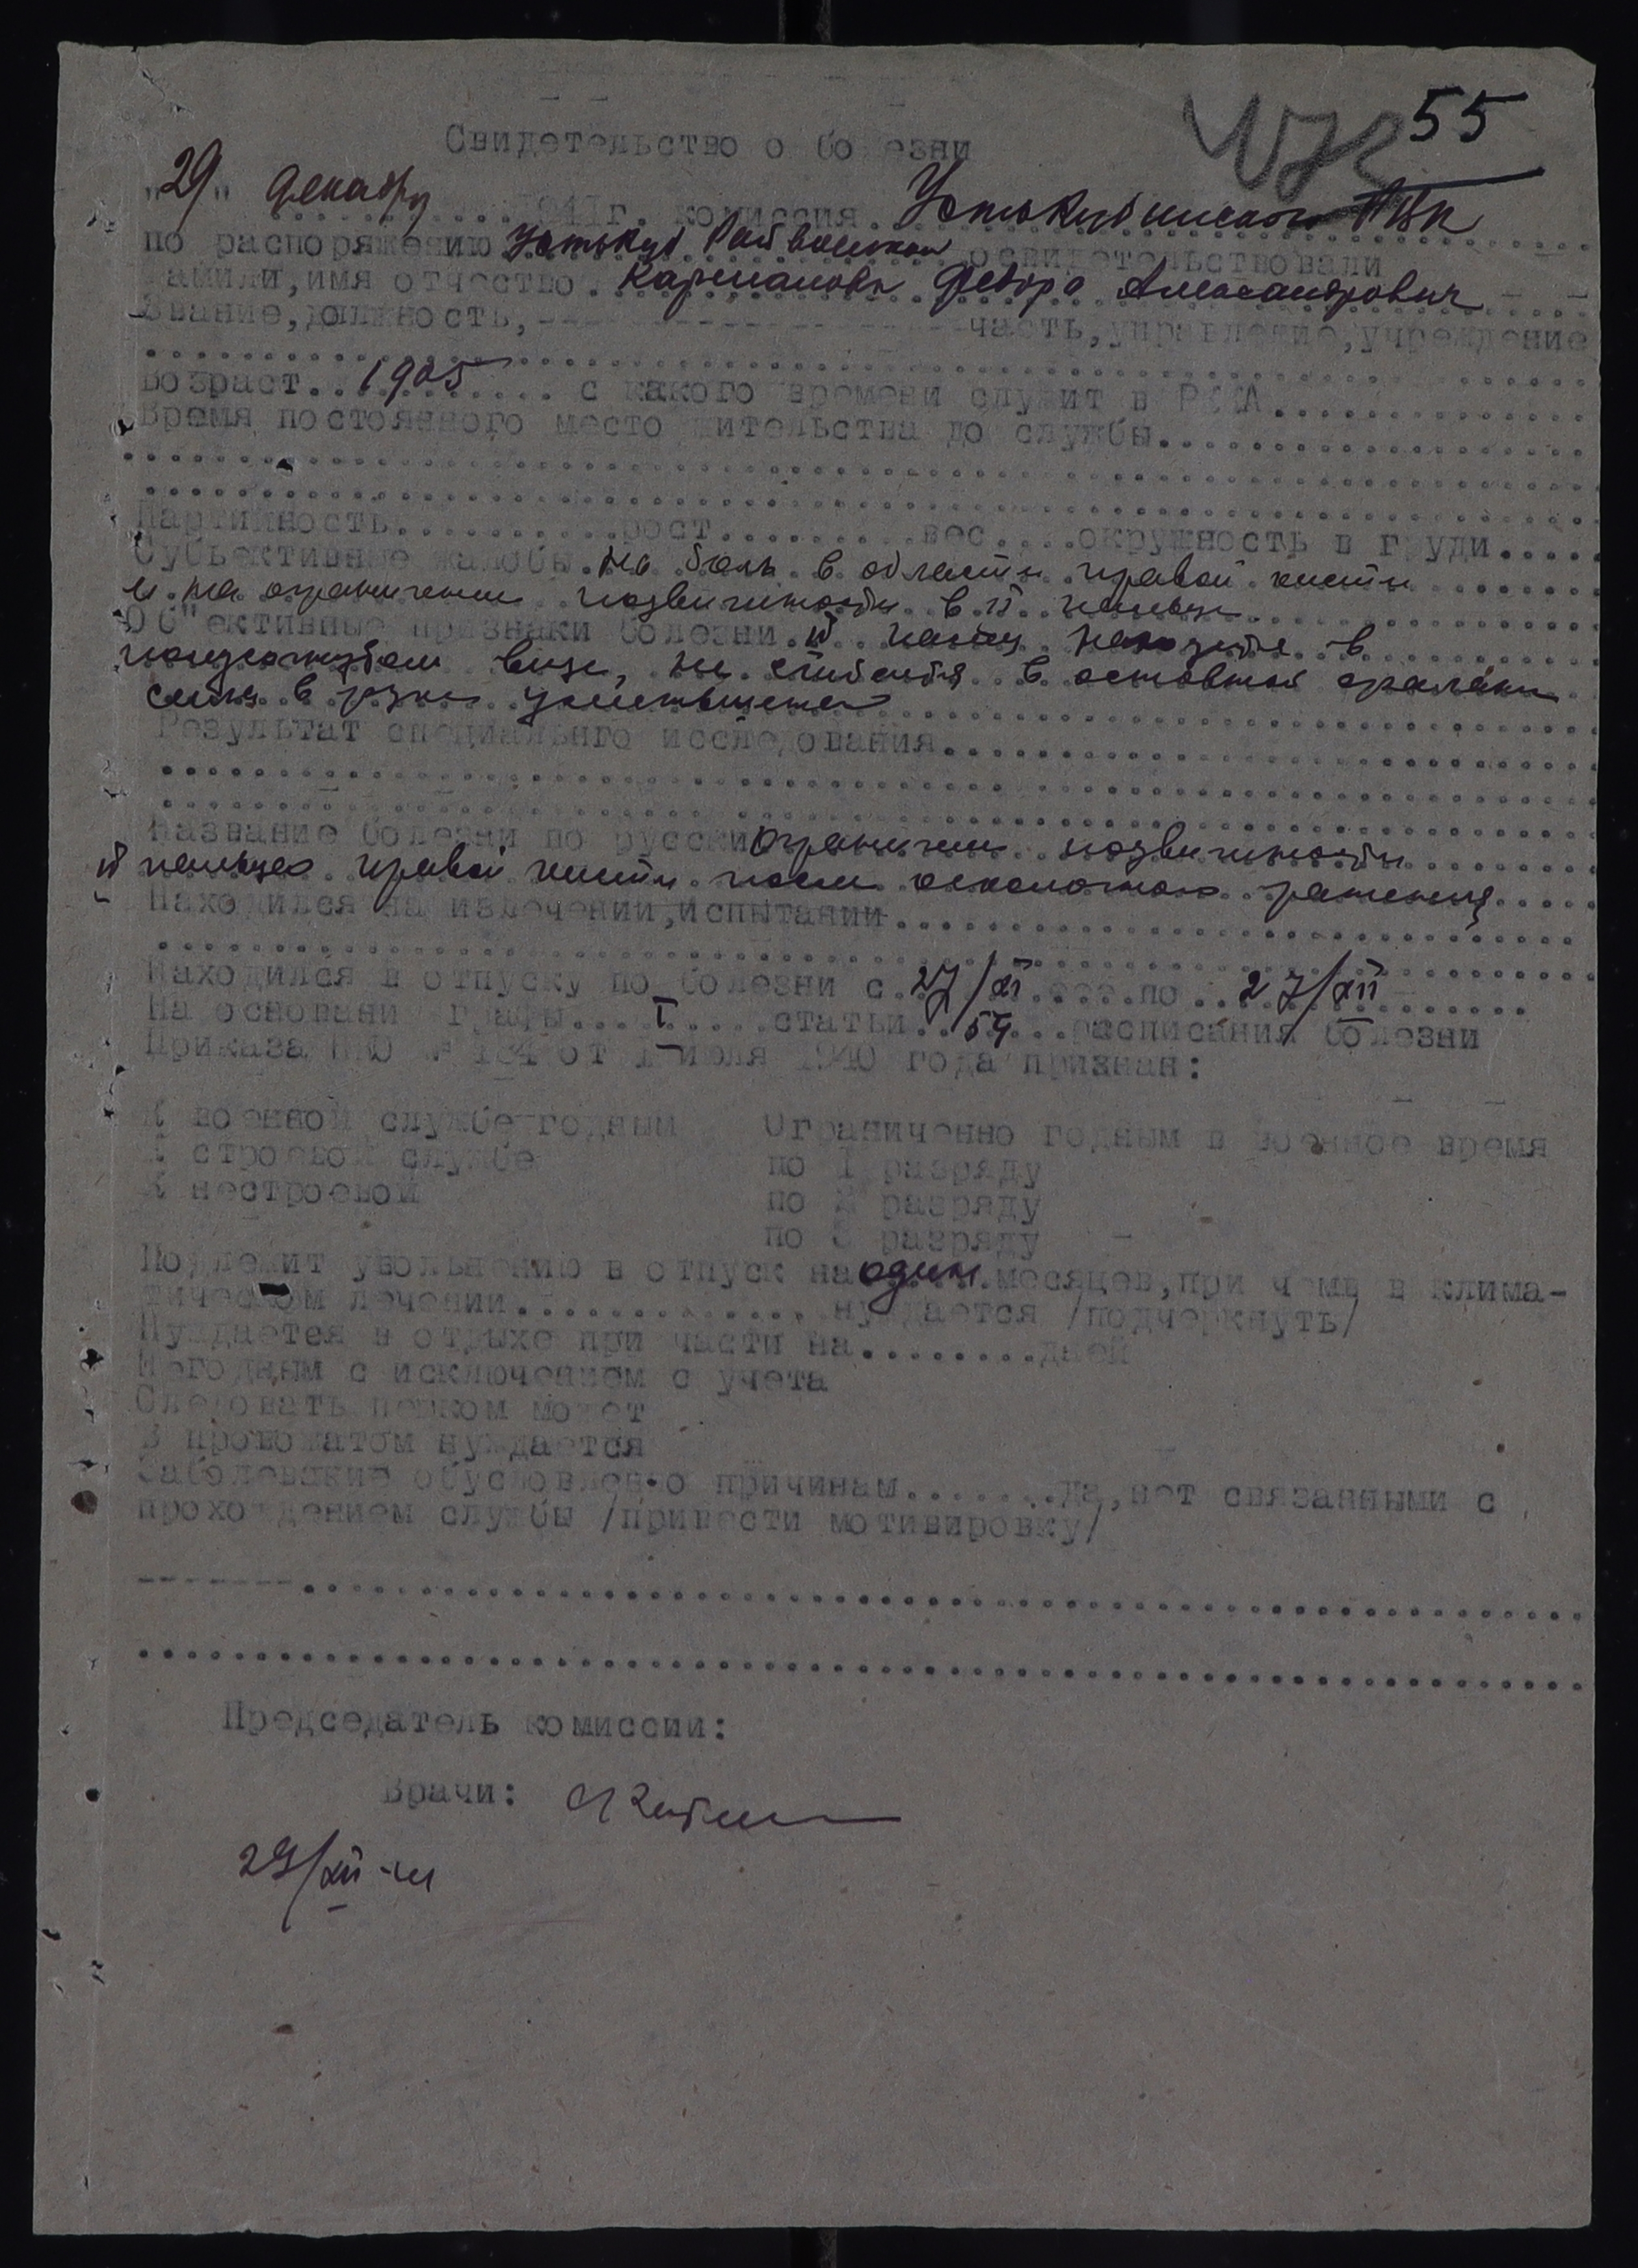 55
Свидетельство о болезни
"29" декабря 1941г. комиссия Усть-Кубинского РВК
по распоряжению Усть-Куб Райвоенкома освидетельствовали
Фамили, имя отчество. Карманова Федора Александрович
Звание, должность,- часть, управление, учреждение
Возраст..1905..... с какого времени служит в РККА
Время постоянного место жительства до службы
Партийность.........рост........вес....окружность в груди.....
Субъективные жалобы. На боль в области правой кисти
и на ограничение подвижности в II пальце.
Об"ективные признаки болезни. II палец находится в
полусогнутом виде, не сгибается в основной фаланги
сила в руке уменьшена
Результат специальнго исследования
Название болезни по русски Ограничение подвижности
II пальца правой кисти после осколочного ранения
Находился на излечении, испытании
Находился в отпуску по болезни с 27/XI по 27/XII
На основани графы...I.....статьи..54...расписания болезни
Приказа НКО № 184 от I июля 1940 года признан:
К военной службе годным Ограниченно годным в военное время
К строевой службе по I разряду
К нестроевой по 2 разряду
по 3 разряду
Подлежит увольнению в отпуск на один месяцев, при чемв в клима-
тическом лечении.............. нуждается /подчеркнуть/
Нуждается в отдыхе при части на.........дней
Негодным с исключением с учета
Следовать пешком может
В провожатом нуждается
Заболевание обусловленно причинам........да, нет связанными с
прохождением службы /привести мотивировку/
Председатель комиссии:
Врачи:
29/XII-41